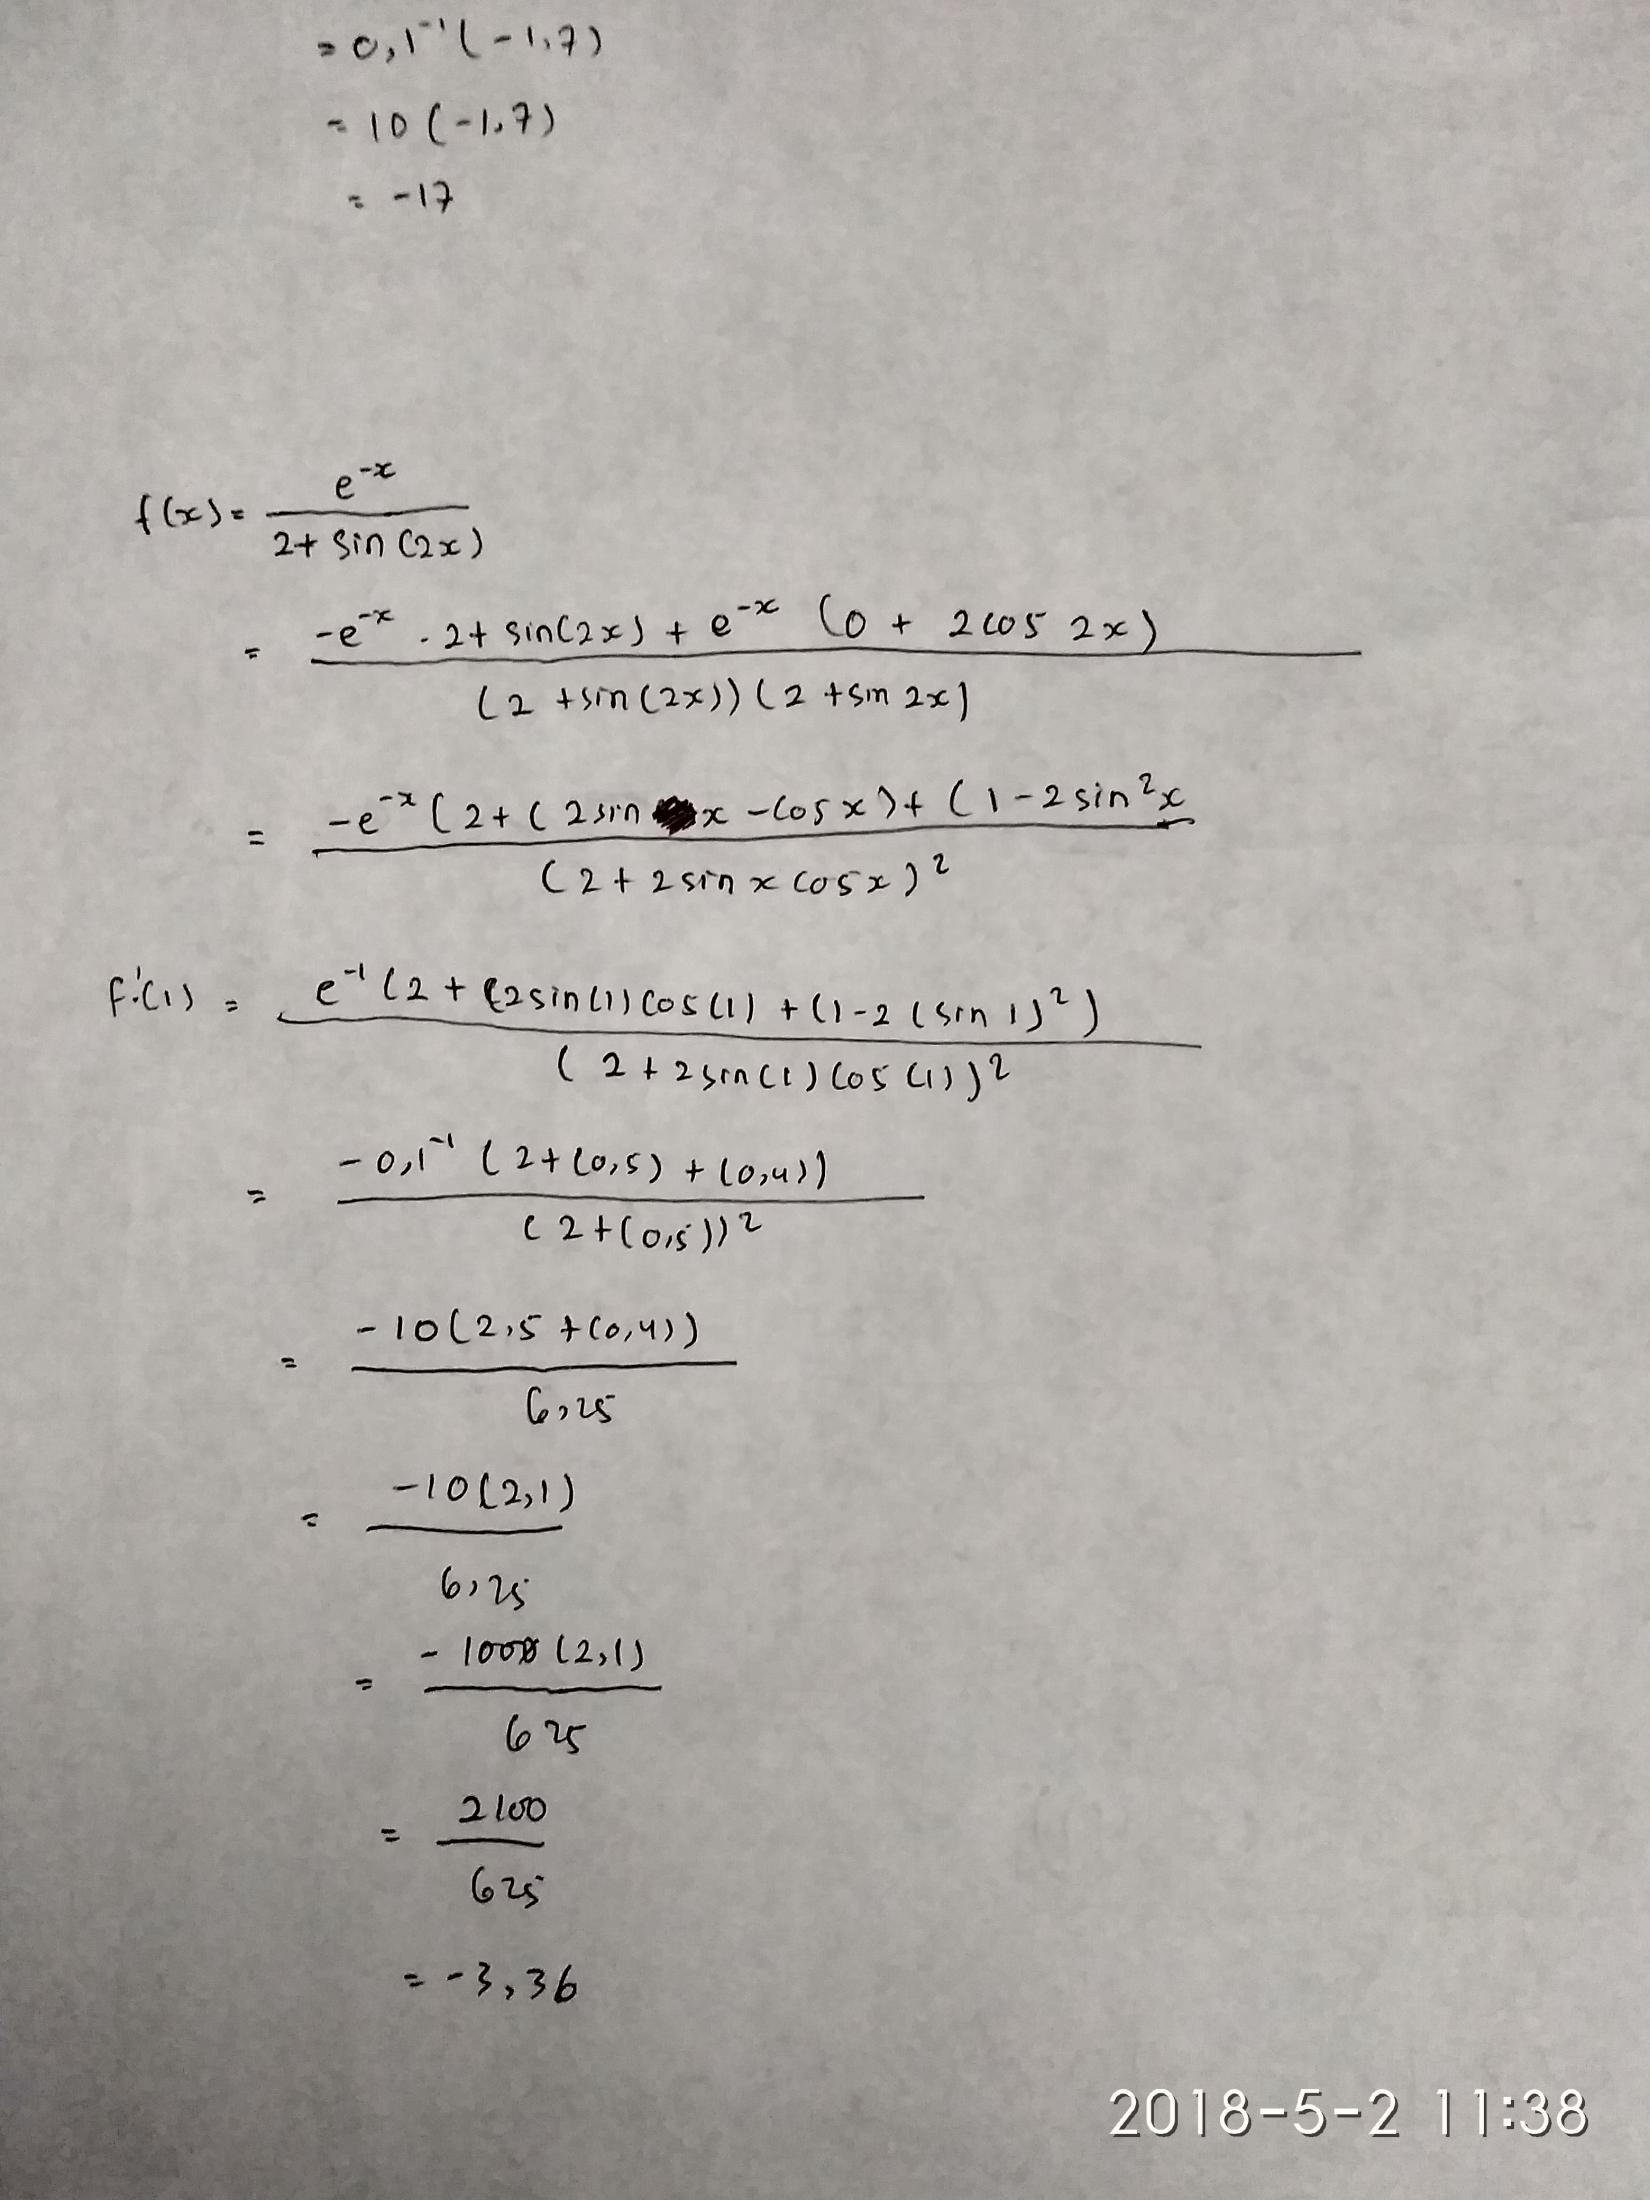 = 0,1⁻¹ (-1,7)
= 10 (-1,7)
= -17
f(x) = e⁻ˣ / 2+ sin (2x)
= -e⁻ˣ . 2+ sin(2x) + e⁻ˣ (0 + 2cos 2x) / (2 +sin(2x)) (2 +sin 2x)
= -e⁻ˣ (2+ (2sin x -cos x) + (1-2sin²x / (2+2sin x cos x)²
f'(1) = e⁻¹ (2 + (2sin(1) cos(1) + (1-2 (sin 1)²) / (2+2sin(1) cos(1))²
= -0,1⁻¹ (2+(0,5) + (0,4)) / (2+(0,5))²
= -10(2,5 +(0,4)) / 6,25
= -10(2,1) / 6,25
= -1000 (2,1) / 625
= 2100 / 625
= -3,36
2018-5-2 11:38